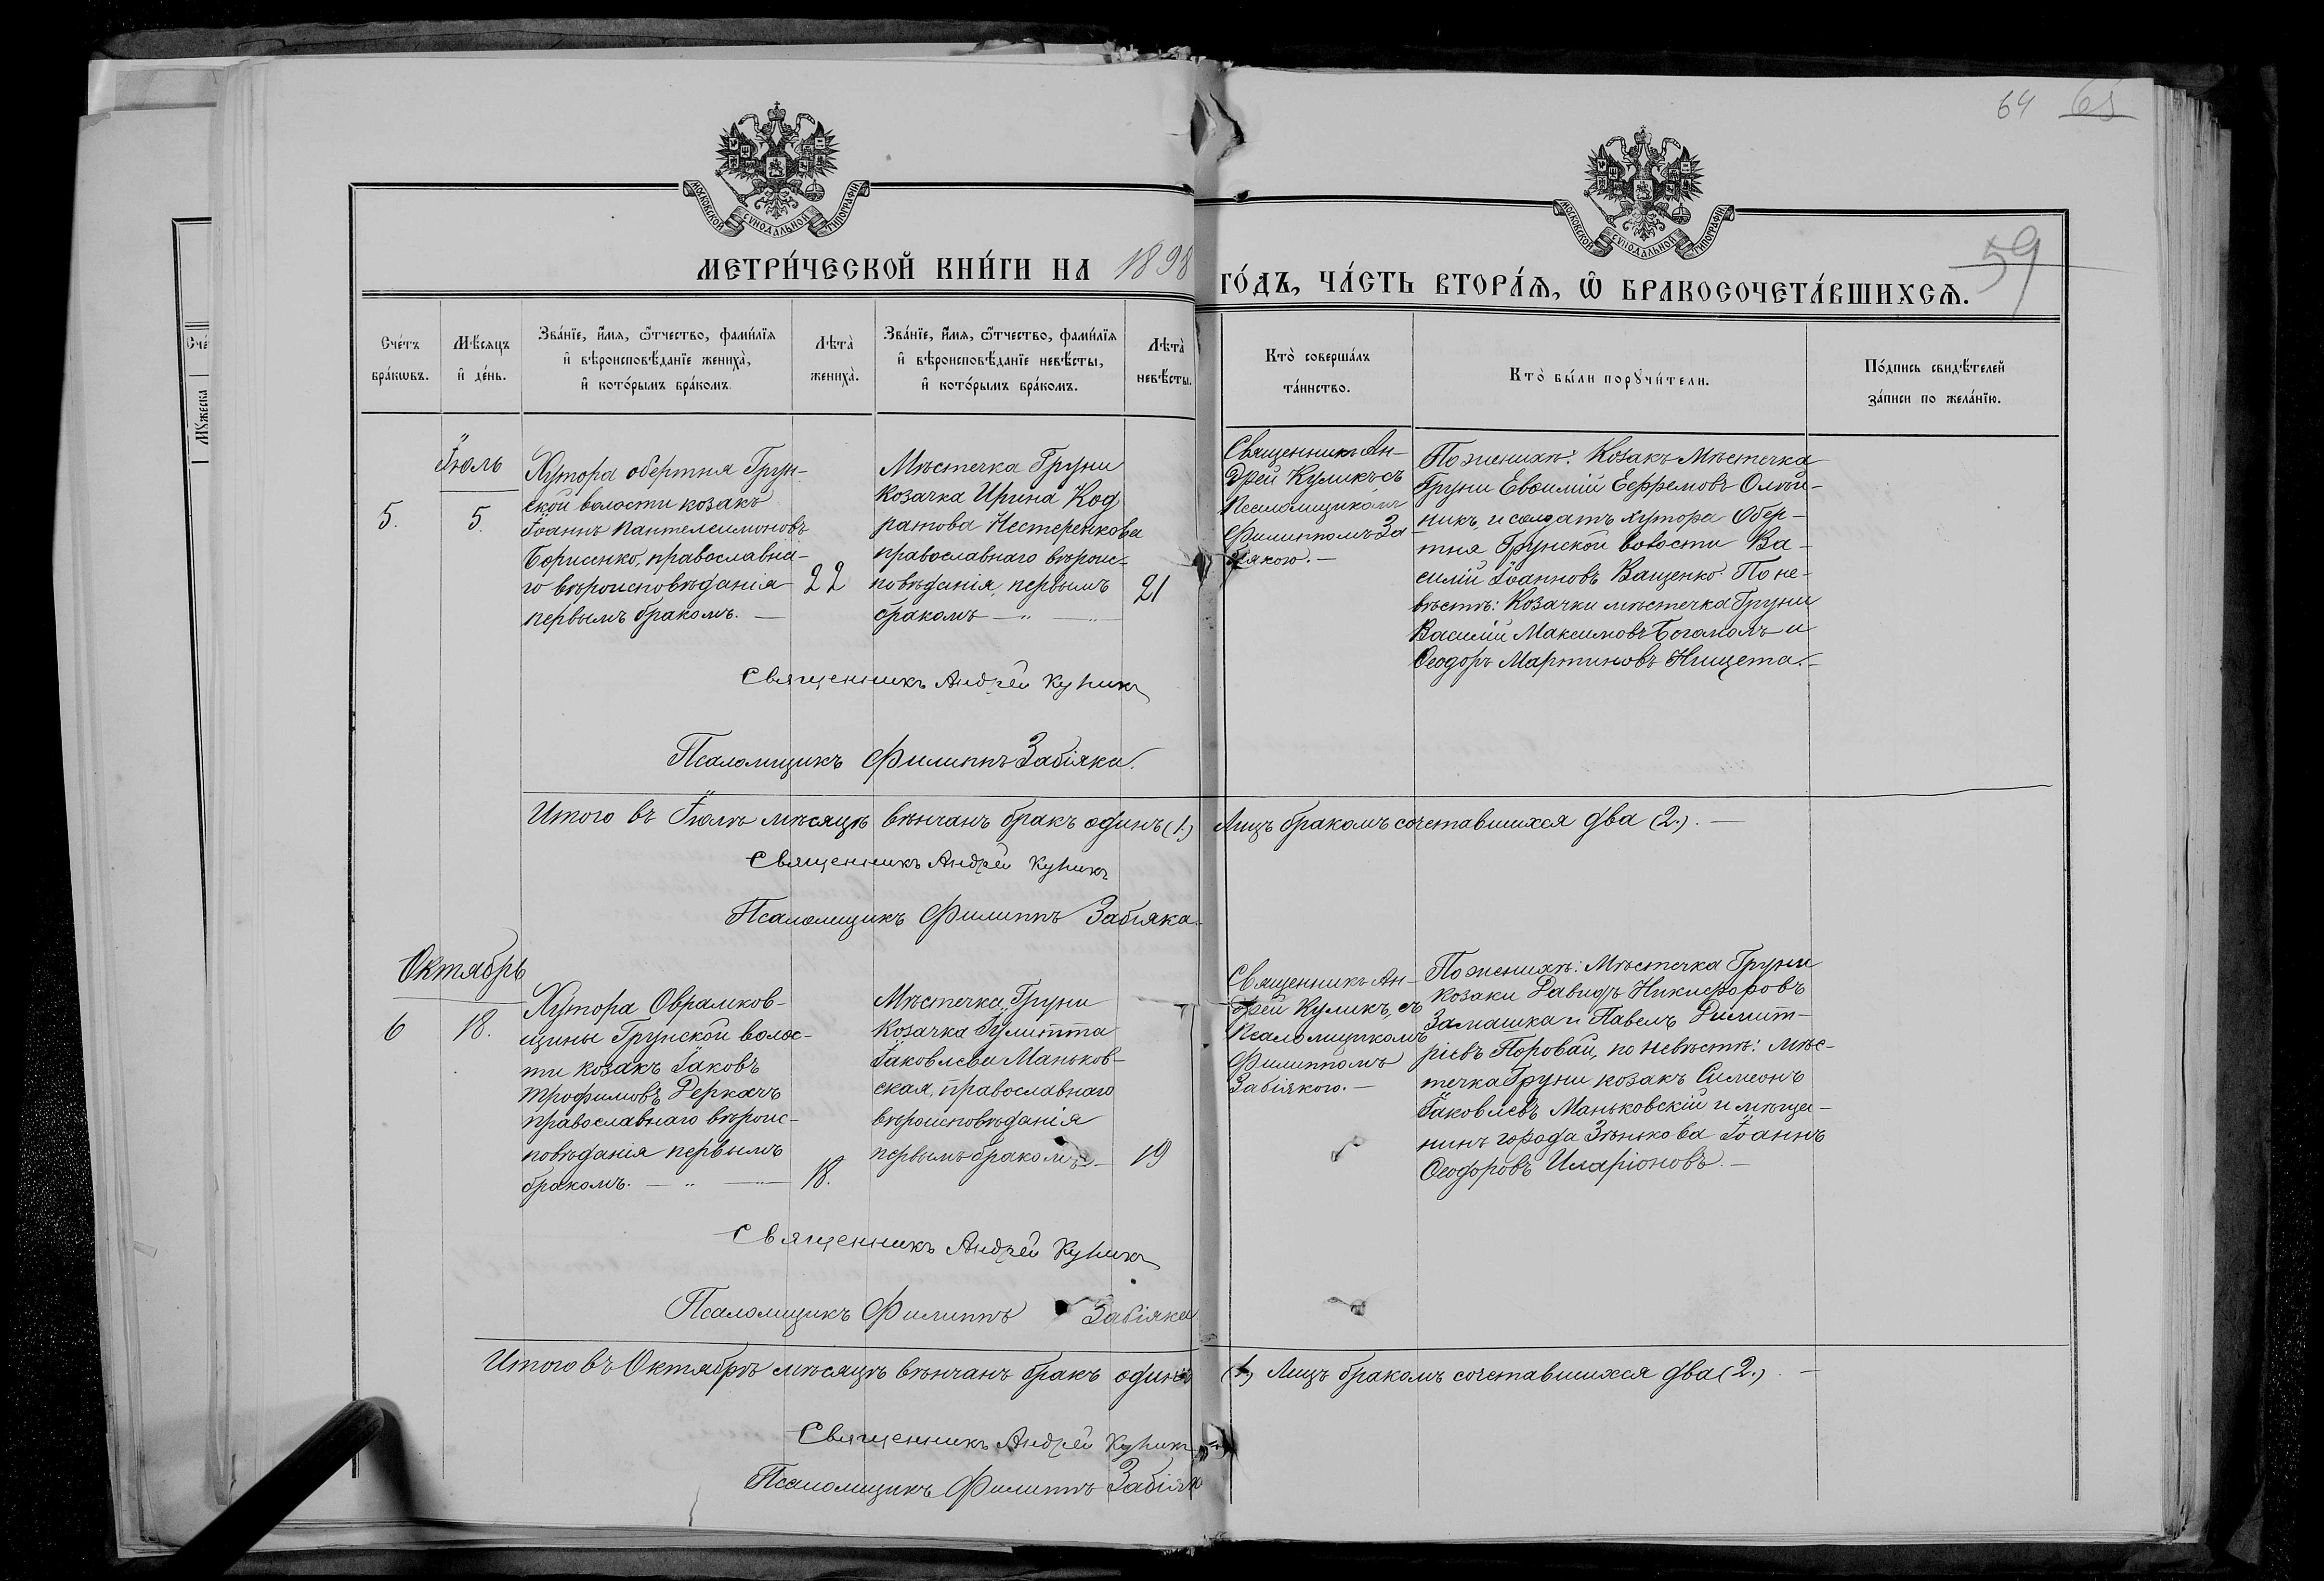 64 65
МОСКОВСКОЙ СѴНОДАЛЬНОЙ ТИПОГРАФІИ
МОСКОВСКОЙ СѴНОДАЛЬНОЙ ТИПОГРАФІИ
59
МЕТРИ́ЧЕСКОЙ КНИ́ГИ НА 1898
ГО́ДЪ, ЧА́СТЬ ВТОРА́Ѧ, Ѽ БРАКОСОЧЕТА́ВШИХСѦ.
Сче́тъ
бра́кѡвъ.
Мѣ́сяцъ
и҆ де́нь.
Зва́нїе, и҆́мя, ѻ҆́тчество, фами́лїя
и҆ вѣроисповѣ́данїе жениха̀,
и҆ кото́рымъ бра́комъ.
Лѣта̀
жениха̀.
Зва́нїе, и҆́мя, ѻ҆́тчество, фами́лїя
и҆ вѣроисповѣ́данїе невѣ́сты,
и҆ кото́рымъ бра́комъ.
Лѣта̀
невѣ́сты.
Кто̀ соверша́лъ
та́инство.
Кто̀ бы́ли порꙋчи́тели.
По́дпись свидѣ́телей
за́писи по жела́нїю.
Сче
Мꙋжеска
Іюль
5.
5.
Хутора Обертня Грун-
ской волости козакъ
Іоаннъ Пантелеимоновъ
Борисенко, православна-
го вѣроисповѣданія
первымъ бракомъ. —
22
Мѣстечка Груни
Козачка Ирина Код
ратова Нестеренкова
православнаго вѣроис-
повѣданія, первымъ
бракомъ — " —
21
Священникъ Ан-
дрей Куликъ съ
Псаломщикомъ
Филиппомъ За-
біякою. —
По женихѣ: Козакъ Мѣстечка
Груни Евѳимій Ефремовъ Олѣй-
никъ, и солдатъ хутора Обер-
тня Грунской волости Ва-
силій Іоанновъ Ващенко. По не-
вѣстѣ: Козачки мѣстечка Груни
Василій Максимовъ Богомолъ и
Ѳеодоръ Мартиновъ Нищета. —
Священникъ Андрей Куликъ
Псаломщикъ Филиппъ Забіяка.
Итого въ Іюлѣ мѣсяцѣ вѣнчанъ бракъ одинъ (1.) Лицъ бракомъ сочетавшихся два (2.). —
Священникъ Андрей Куликъ
Псаломщикъ Филиппъ Забіяка.
Октябрь
6
18.
Хутора Оврамков-
щины Грунской волос-
ти козакъ Іаковъ
Трофимовъ Деркачъ
православнаго вѣроис-
повѣданія первымъ
бракомъ. — " —
18.
Мѣстечка Груни
Козачка Іулитта
Іаковлева Маньков-
ская, православнаго
вѣроисповѣданія
первымъ бракомъ. —
19
Священникъ Ан-
дрей Куликъ, съ
Псаломщикомъ
Филиппомъ
Забіякою. —
По женихѣ: Мѣстечка Груни
козаки Давидъ Никифоровъ
Замашка и Павелъ Димит-
ріевъ Поровай, по невѣстѣ: мѣс-
течка Груни козакъ Симеонъ
Іаковлевъ Маньковскій и мѣща-
нинъ города Зѣнькова Іоаннъ
Ѳеодоровъ Иларіоновъ. —
Священникъ Андрей Куликъ
Псаломщикъ Филиппъ Забіяка
Итого въ Октябрѣ мѣсяцѣ вѣнчанъ бракъ одинъ (1) Лицъ бракомъ сочетавшихся два (2.). —
Священникъ Андрей Куликъ
Псаломщикъ Филиппъ Забіяк